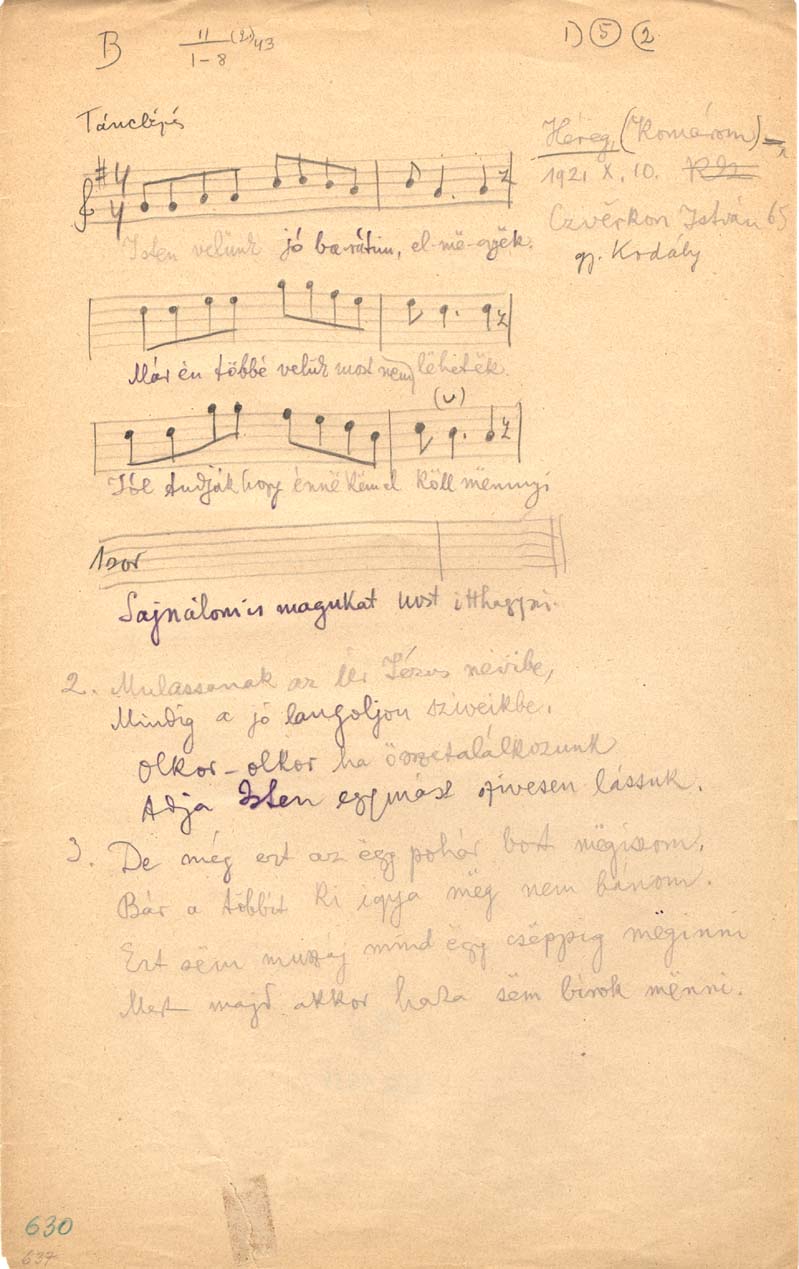 B 11 (2) 43
1-8
1) 5 2
Tánclépés
Héreg, (Komárom)
1921 X. 10.
Czvërkon István 65
gy. Kodály
4
4
Isten velünk jó ba-rátim, el-më-gyëk.
Már én többé velük most nem lëhetëk.
(v)
Jól tudják hogy énnëkëmel këll mënnyi
1 sor
Sajnálom is magukat most itthagyni.
2. Mulassanak az Úr Jézus nevibe,
Mindig a jó langoljon sziveikbe.
Olkor-olkor ha összetalálkozunk
Adja Isten egymást szivesen lássuk.
3. De még ezt az ëgy pohár bort mëgiszom,
Bár a többit ki igya mëg nem bánom.
Ezt sëm muszáj mind ëgy csëppig mëginni
Mert majd akkor haza sëm birok mënni.
630
637